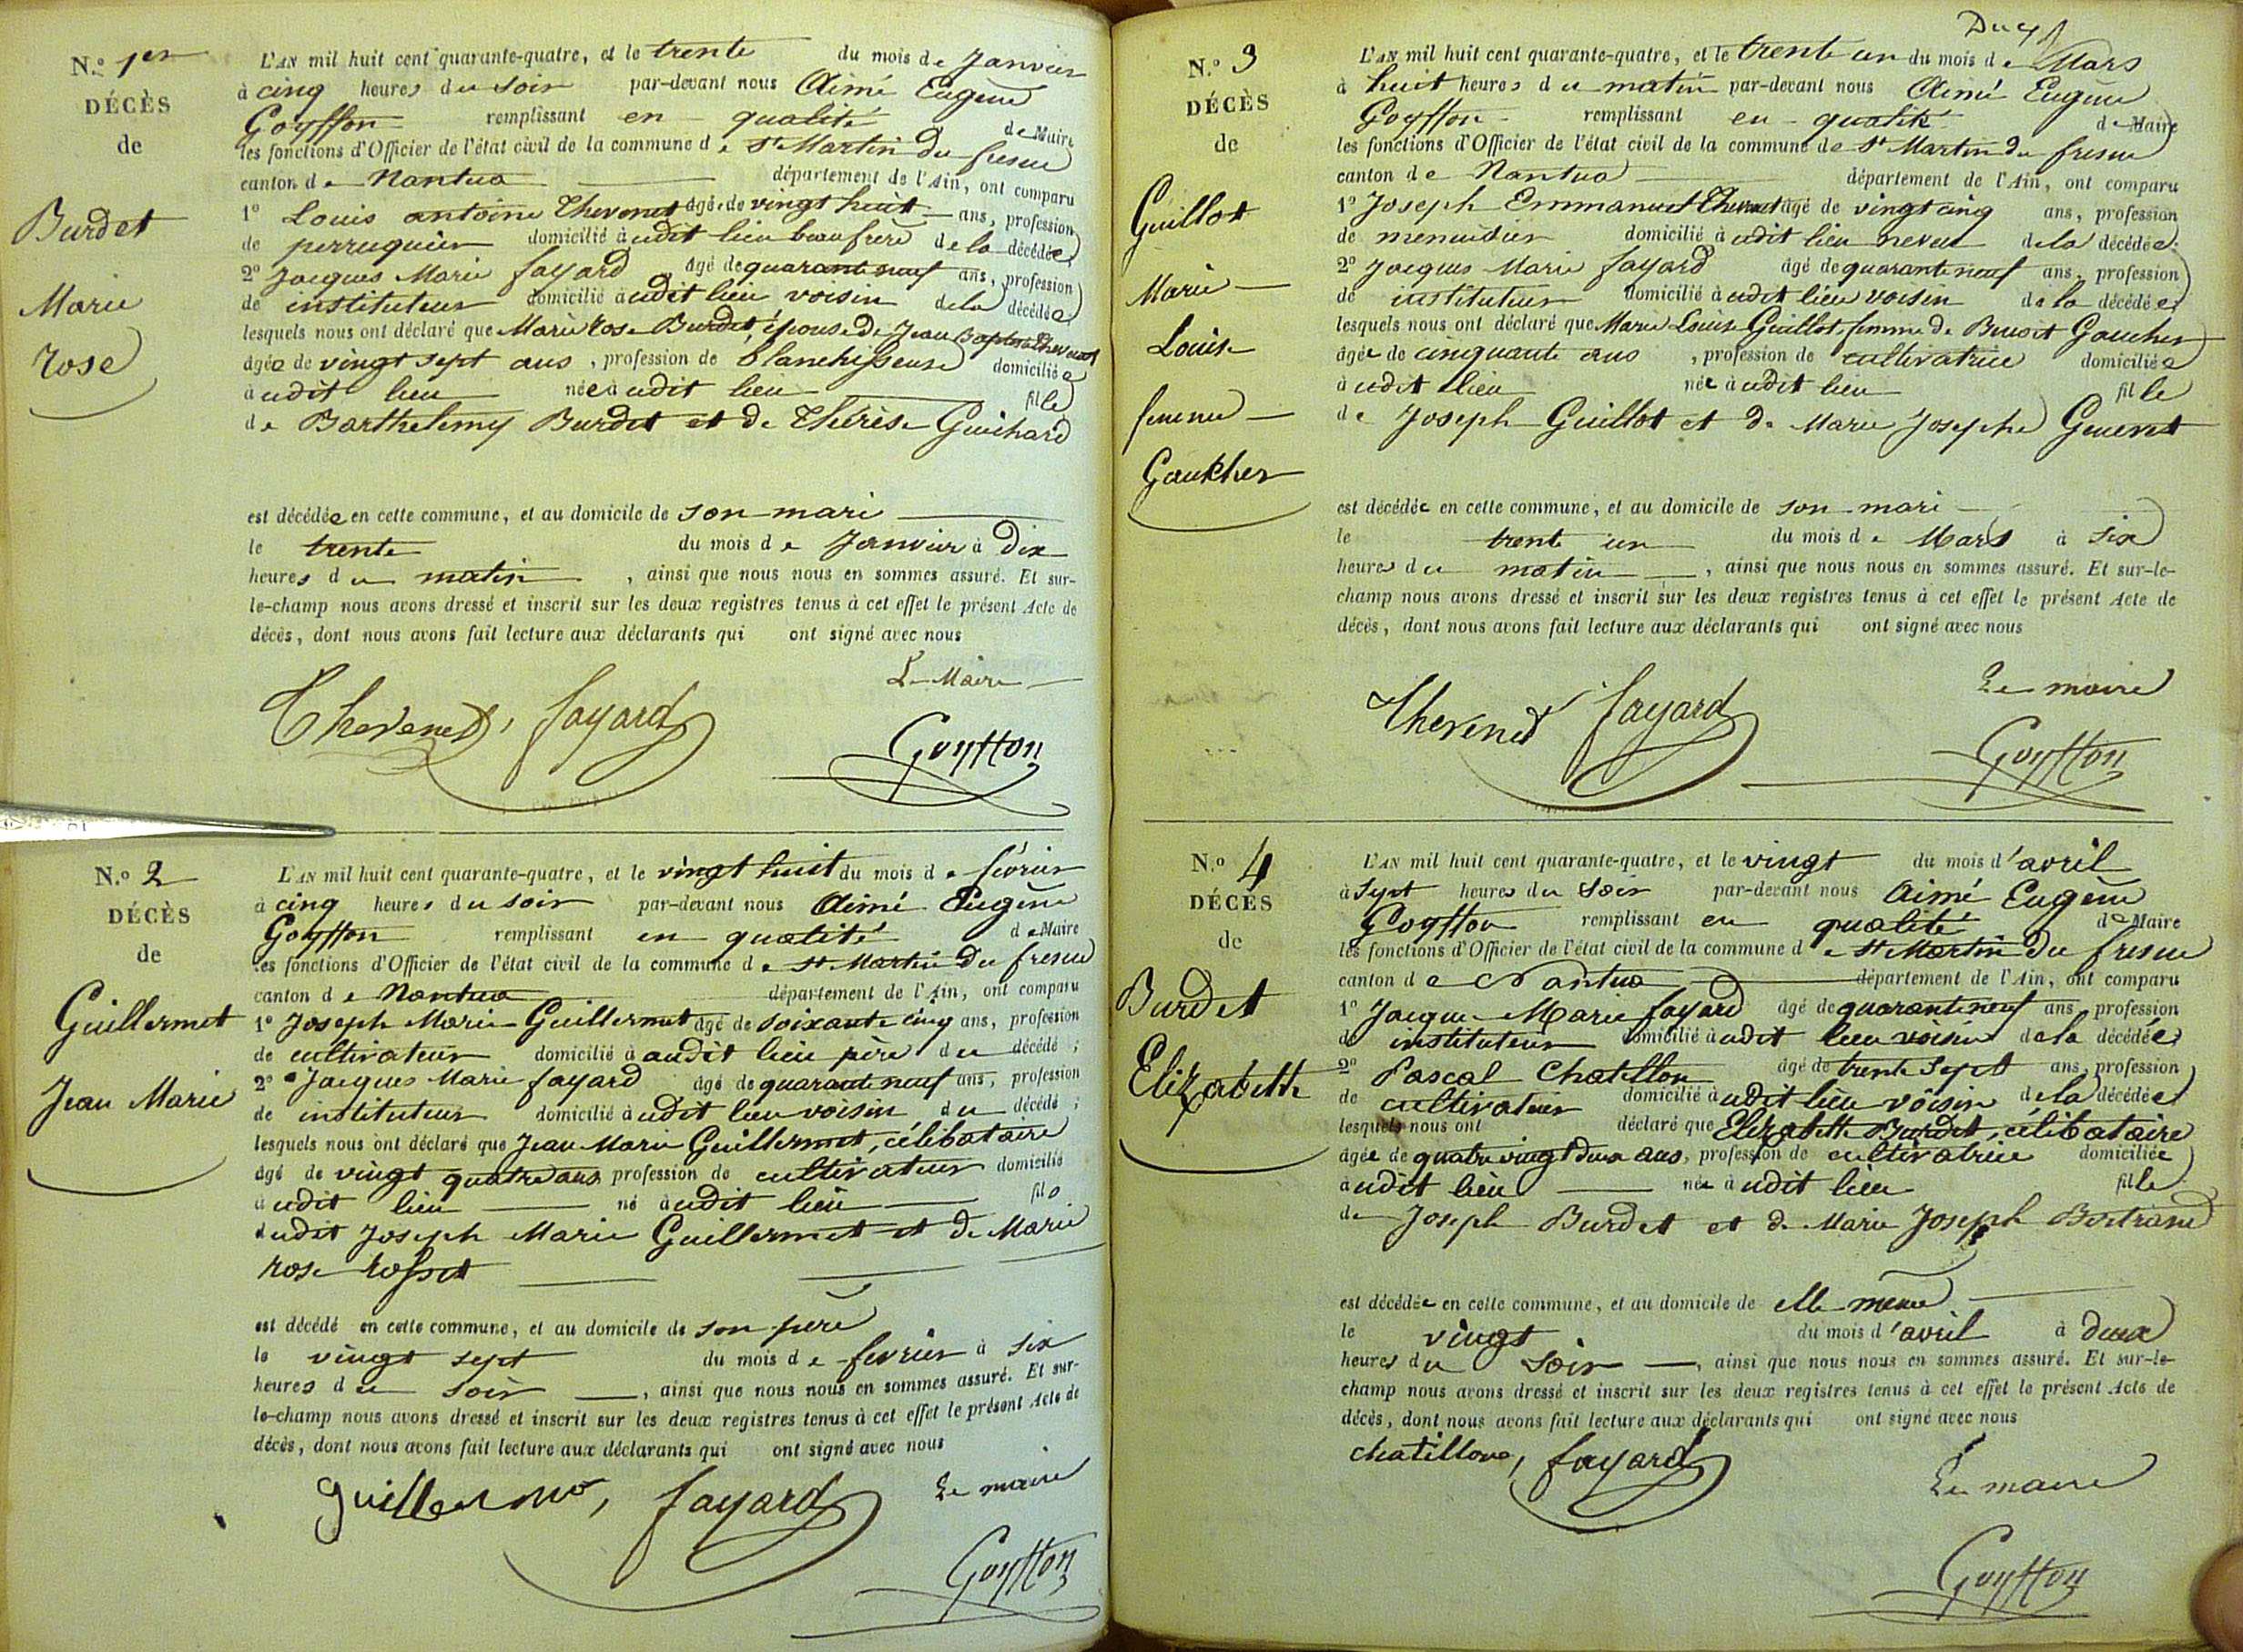 N.º 1er
DÉCÈS
de
Burdet
Marie
rose
L'AN mil huit cent quarante-quatre, et le trente du mois de Janvier
à cinq heures du soir par-devant nous Aimé Eugène
Goyffon remplissant en qualité de Maire
les fonctions d'Officier de l'état civil de la commune de St Martin du fresne
canton de Nantua département de l'Ain, ont comparu
1º Louis antoine Thevenet âgé de vingt huit ans, profession
de perruquier domicilié à udit lieu beau frère de la décédée
2º Jacques Marie fayard âgé de quarante neuf ans, profession
de instituteur domicilié à udit lieu voisin de la décédée
lesquels nous ont déclaré que Marie rose Burdet, épouse de Jean Baptiste Thevenet
âgée de vingt sept ans, profession de blanchisseuse domiciliée
à udit lieu née à udit lieu fille
de Barthelemy Burdet et de Thérèse Guichard
est décédée en cette commune, et au domicile de son mari
le trente du mois de Janvier à dix
heures du matin, ainsi que nous nous en sommes assuré. Et sur-
le-champ nous avons dressé et inscrit sur les deux registres tenus à cet effet le présent Acte de
décès, dont nous avons fait lecture aux déclarants qui ont signé avec nous
Le Maire
Thevenet, fayard
Goyffon
N.º 2
DÉCÈS
de
Guillermet
Jean Marie
L'AN mil huit cent quarante-quatre, et le vingt huit du mois de février
à cinq heures du soir par-devant nous Aimé Eugène
Goyffon remplissant en qualité de Maire
les fonctions d'Officier de l'état civil de la commune de St Martin du fresne
canton de Nantua département de l'Ain, ont comparu
1º Joseph Marie Guillermet âgé de soixante cinq ans, profession
de cultivateur domicilié à audit lieu père du décédé;
2º Jacques Marie fayard âgé de quarante neuf ans, profession
de instituteur domicilié à udit lieu voisin du décédé;
lesquels nous ont déclaré que Jean Marie Guillermet, célibataire
âgé de vingt quatre ans profession de cultivateur domicilié
à udit lieu né à udit lieu fils
dudit Joseph Marie Guillermet et de Marie
rose rosset
est décédé en cette commune, et au domicile de son père
le vingt sept du mois de fevrier à six
heures du soir, ainsi que nous nous en sommes assuré. Et sur-
le-champ nous avons dressé et inscrit sur les deux registres tenus à cet effet le présent Acte de
décès, dont nous avons fait lecture aux déclarants qui ont signé avec nous
fayard
Le maire
Goyffon
N.º 3
DÉCÈS
de
Guillot
Marie
Louise
femme
Gaucher
L'AN mil huit cent quarante-quatre, et le trente un du mois de Mars
à huit heures du matin par-devant nous Aimé Eugène
Goyffon remplissant en qualité de Maire
les fonctions d'Officier de l'état civil de la commune de St Martin du fresne
canton de Nantua département de l'Ain, ont comparu
1º Joseph Emmanuel Thevenet âgé de vingt cinq ans, profession
de menuisier domicilié à udit lieu neveu de la décédée;
2º Jacques Marie fayard âgé de quarante neuf ans, profession
de instituteur domicilié à udit lieu voisin de la décédée;
lesquels nous ont déclaré que Marie Louise Guillot, femme de Benoit Gaucher
âgée de cinquante ans, profession de cultivatrice domiciliée
à udit lieu née à udit lieu fille
de Joseph Guillot et de Marie Josephe
est décédée en cette commune, et au domicile de son mari
le trente un du mois de Mars à six
heures du matin, ainsi que nous nous en sommes assuré. Et sur-le-
champ nous avons dressé et inscrit sur les deux registres tenus à cet effet le présent Acte de
décès, dont nous avons fait lecture aux déclarants qui ont signé avec nous
Le maire
Thevenet fayard
Goyffon
N.º 4
DÉCÈS
de
Burdet
Elizabette
L'AN mil huit cent quarante-quatre, et le vingt du mois d'avril
à sept heures du soir par-devant nous Aimé Eugène
Goyffon remplissant en qualité de Maire
les fonctions d'Officier de l'état civil de la commune de St Martin du fresne
canton de Nantua département de l'Ain, ont comparu
1º Jacque Marie fayard âgé de quarante neuf ans, profession
de instituteur domicilié à udit lieu voisin de la décédée
2º Pascal Chatillon âgé de trente sept ans, profession
de cultivateur domicilié à udit lieu voisin de la décédée
lesquels nous ont déclaré que Elizabette Burdet, célibataire
âgée de quatre vingt deux ans, profession de cultivatrice domiciliée
à udit lieu née à udit lieu fille
de Joseph Burdet et de Marie Joseph Bertrand
est décédée en cette commune, et au domicile de elle même
le vingt du mois d'avril à deux
heures du soir, ainsi que nous nous en sommes assuré. Et sur-le-
champ nous avons dressé et inscrit sur les deux registres tenus à cet effet le présent Acte de
décès, dont nous avons fait lecture aux déclarants qui ont signé avec nous
chatillon, fayard
Le maire
Goyffon